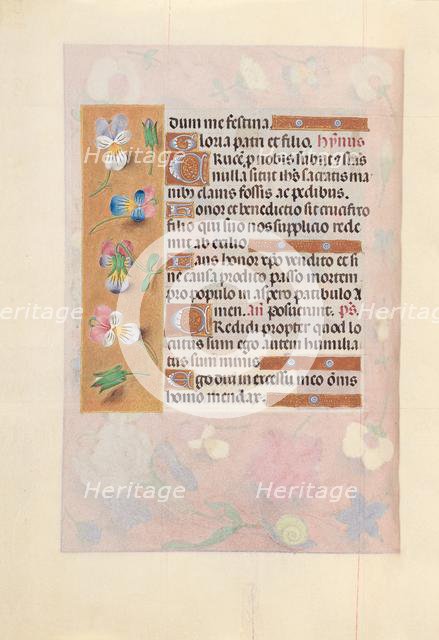 dum me festina.
Gloria patri et filio. hymnus
Crucem p nobis subiit et stās
nulla sitit ihs sacratis ma
nib clauis fossis ac pedibus.
Honor et benedictio sit crucifixo
filio qui suo nos supplicio rede
mit ab exilio.
Laus honor xpo vendito et si
ne causa prodito passo mortem
pro populo in aspero patibulo A
men. añ Posuerunt. ps.
Credidi propter quod lo
cutus sum ego autem humilia
tus sum nimis.
Ego dixi in excessu meo ōnis
homo mendax.
Heritage
Heritage
Heritage
Heritage
Heritage
Heritage
Heritage